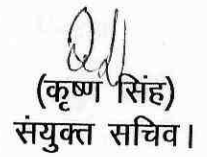 (कृष्ण सिंह)
संयुक्त सचिव।